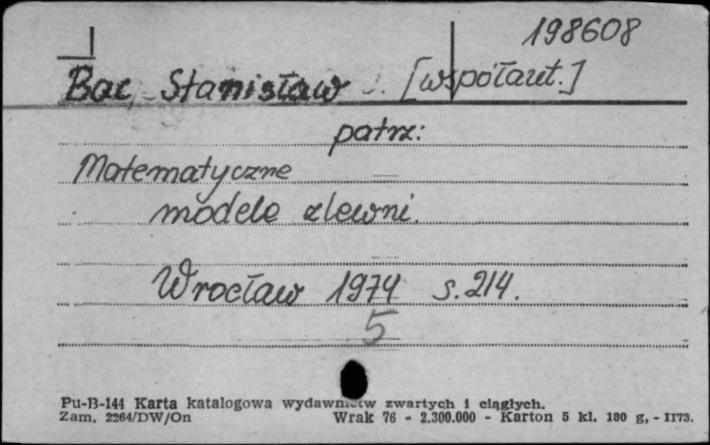 198608
Bac, Stanisław [współaut.]
patrz:
Matematyczne
modele zlewni.
Wrocław 1974 s. 214.
5
Pu-B-144 Karta katalogowa wydawnictw zwartych i ciągłych.
Zam. 2264/DW/On Wrak 76 - 2.300.000 - Karton 5 kl. 180 g, - II73.